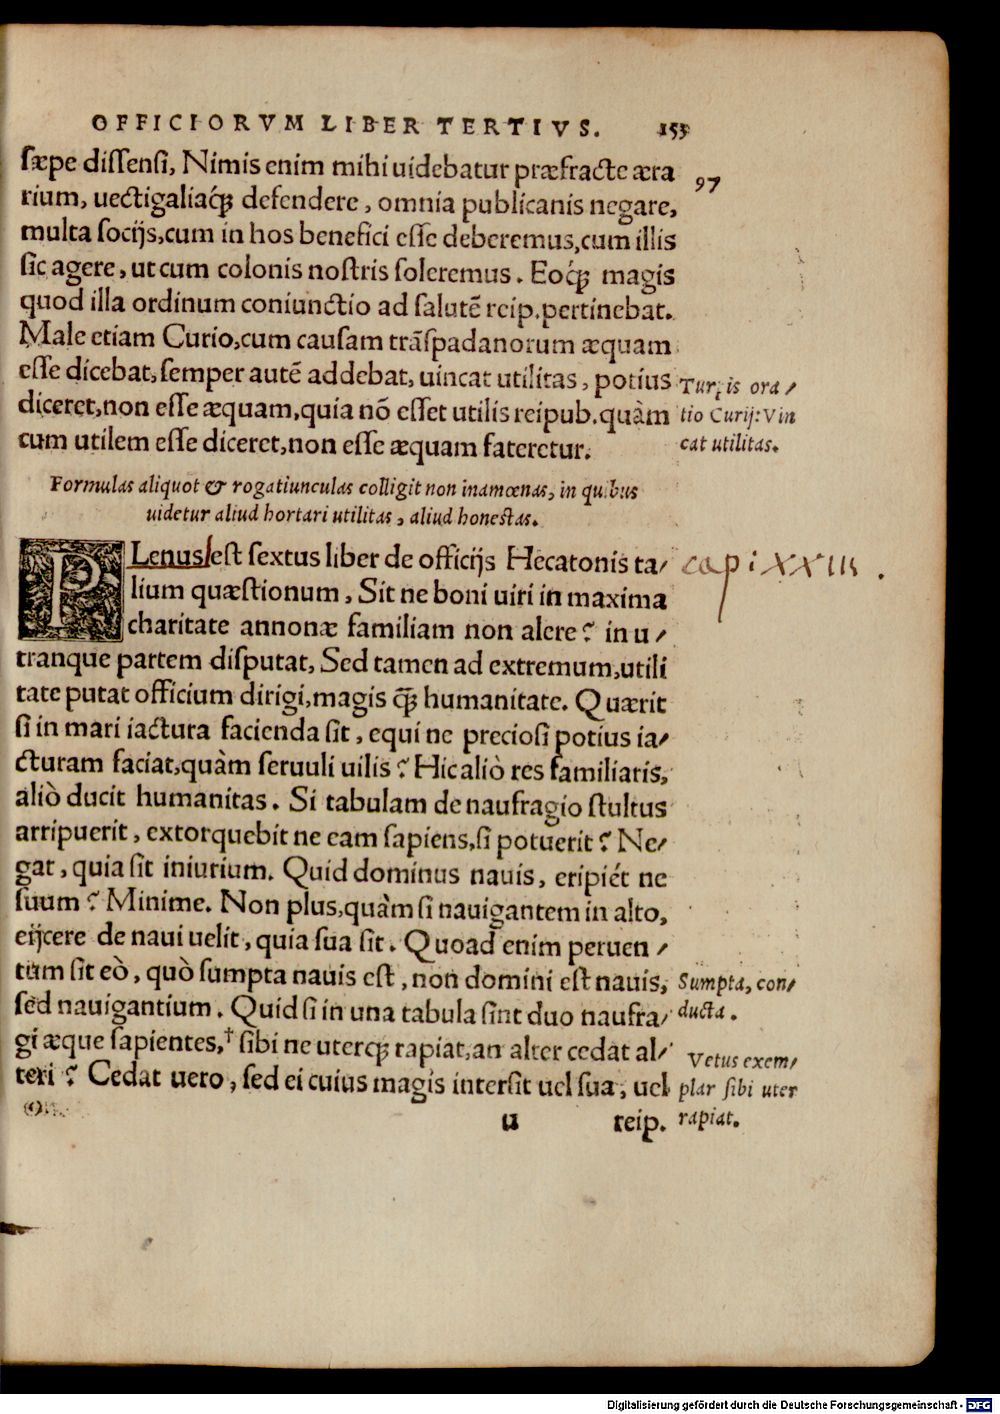 OFFICIORVM LIBER TERTIVS. 153
97
sæpe dissensi, Nimis enim mihi uidebatur præfracte æra
rium, uectigaliaq́ꝫ defendere, omnia publicanis negare,
multa socijs,cum in hos benefici esse deberemus,cum illis
sic agere, ut cum colonis nostris soleremus. Eoq́ꝫ magis
quod illa ordinum coniunctio ad salutē reip.pertinebat.
Male etiam Curio,cum causam trāspadanorum æquam
esse dicebat,semper autē addebat, uincat utilitas, potius
diceret,non esse æquam,quia nō esset utilis reipub.quàm
cum utilem esse diceret,non esse æquam fateretur.
Turpis ora/
tio Curij: Vin
cat utilitas.
Formulas aliquot & rogatiunculas colligit non inamœnas, in quibus
uidetur aliud hortari utilitas, aliud honestas.
PLenus est sextus liber de officijs Hecatonis ta/
lium quæstionum, Sit ne boni uiri in maxima
charitate annonæ familiam non alere? in u/
tranque partem disputat, Sed tamen ad extremum,utili
tate putat officium dirigi,magis q̄ꝫ humanitate. Quærit
si in mari iactura facienda sit, equi ne preciosi potius ia/
cturam faciat,quàm seruuli uilis? Hic aliò res familiaris,
aliò ducit humanitas. Si tabulam de naufragio stultus
arripuerit, extorquebit ne eam sapiens,si potuerit? Ne/
gat, quia sit iniurium. Quid dominus nauis, eripiét ne
suum? Minime. Non plus,quàm si nauigantem in alto,
eijcere de naui uelit, quia sua sit. Quoad enim peruen/
tum sit eò, quò sumpta nauis est, non domini est nauis,
sed nauigantium. Quid si in una tabula sint duo naufra/
gi æque sapientes,† sibi ne uterq́ꝫ rapiat,an alter cedat al/
teri? Cedat uero, sed ei cuius magis intersit uel sua, uel
capi XXIII.
Sumpta, con/
ducta.
Vetus exem/
plar sibi uter
rapiat.
u reip.
Digitalisierung gefördert durch die Deutsche Forschungsgemeinschaft - DFG